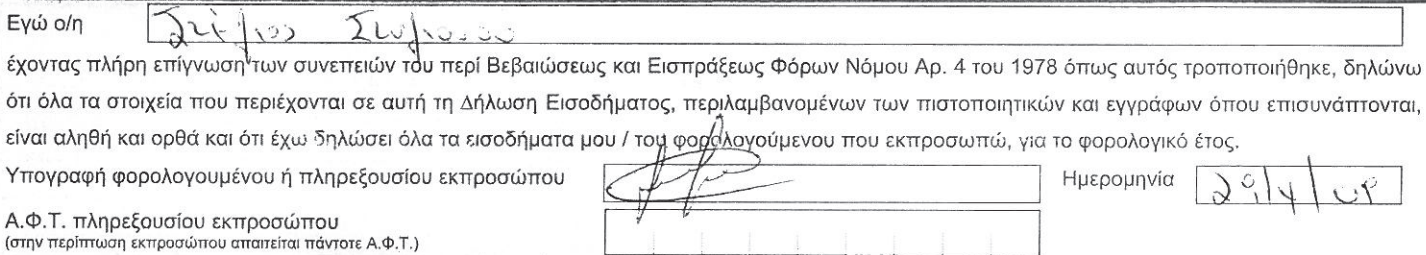 Εγώ ο/η
έχοντας πλήρη επίγνωση των συνεπειών του περί Βεβαιώσεως και Εισπράξεως Φόρων Νόμου Αρ. 4 του 1978 όπως αυτός τροποποιήθηκε, δηλώνω
ότι όλα τα στοιχεία που περιέχονται σε αυτή τη Δήλωση Εισοδήματος, περιλαμβανομένων των πιστοποιητικών και εγγράφων όπου επισυνάπτονται,
είναι αληθή και ορθά και ότι έχω δηλώσει όλα τα εισοδήματα μου / του φορολογούμενου που εκπροσωπώ, για το φορολογικό έτος.
Υπογραφή φορολογουμένου ή πληρεξουσίου εκπροσώπου Ημερομηνία
Α.Φ.Τ. πληρεξουσίου εκπροσώπου
(στην περίπτωση εκπροσώπου απαιτείται πάντοτε Α.Φ.Τ.)